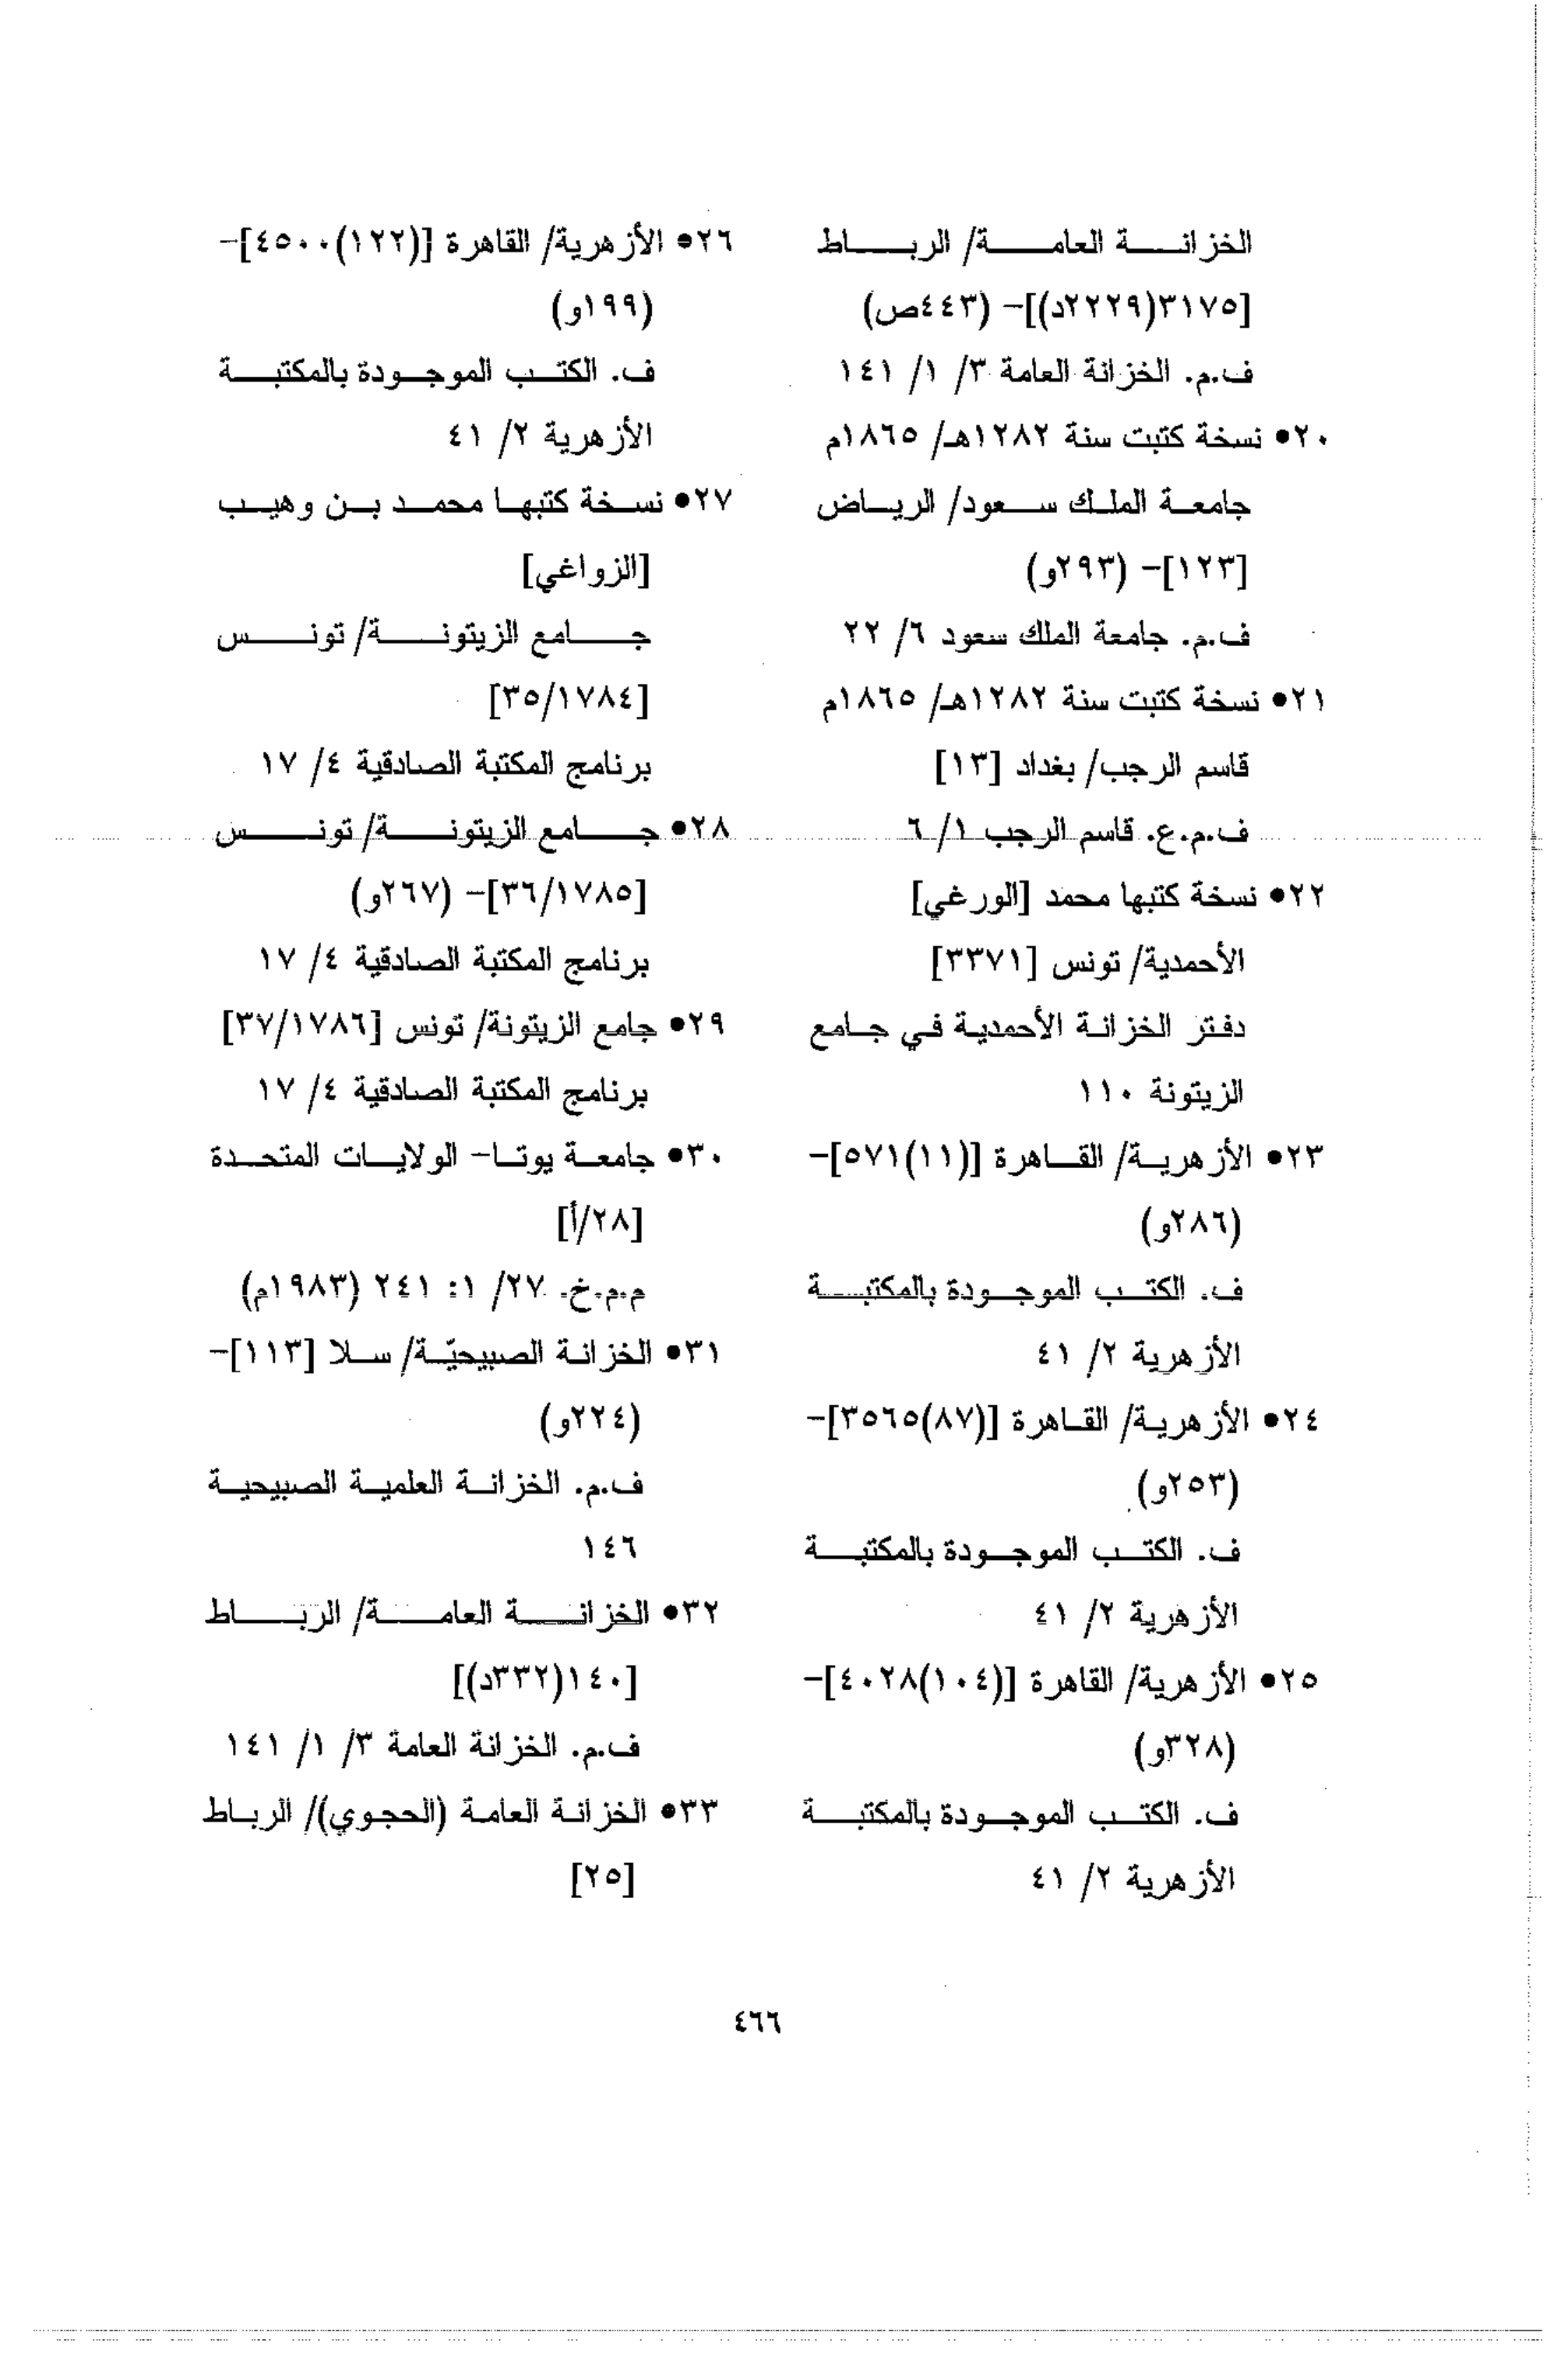 الخزانة العامة/ الرباط
[٣١٧٥(٢٢٢٩د)]- (٤٤٣ص)
ف.م. الخزانة العامة ٣/ ١/ ١٤١
٢٠● نسخة كتبت سنة ١٢٨٢هـ/ ١٨٦٥م
جامعة الملك سعود/ الرياض
[١٢٣]- (٢٩٣و)
ف.م. جامعة الملك سعود ٦/ ٢٢
٢١● نسخة كتبت سنة ١٢٨٢هـ/ ١٨٦٥م
قاسم الرجب/ بغداد [١٣]
ف.م.ع. قاسم الرجب ١/ ٦
٢٢● نسخة كتبها محمد [الورغي]
الأحمدية/ تونس [٣٣٧١]
دفتر الخزانة الأحمدية في جامع
الزيتونة ١١٠
٢٣● الأزهرية/ القاهرة [(١١)٥٧١]-
(٢٨٦و)
ف. الكتب الموجودة بالمكتبة
الأزهرية ٢/ ٤١
٢٤● الأزهرية/ القاهرة [(٨٧)٣٥٦٥]-
(٢٥٣و)
ف. الكتب الموجودة بالمكتبة
الأزهرية ٢/ ٤١
٢٥● الأزهرية/ القاهرة [(١٠٤)٤٠٢٨]-
(٣٢٨و)
ف. الكتب الموجودة بالمكتبة
الأزهرية ٢/ ٤١
٢٦● الأزهرية/ القاهرة [(١٢٢)٤٥٠٠]-
(١٩٩و)
ف. الكتب الموجودة بالمكتبة
الأزهرية ٢/ ٤١
٢٧● نسخة كتبها محمد بن وهيب
[الزواغي]
جامع الزيتونة/ تونس
[٣٥/١٧٨٤]
برنامج المكتبة الصادقية ٤/ ١٧
٢٨● جامع الزيتونة/ تونس
[٣٦/١٧٨٥]- (٢٦٧و)
برنامج المكتبة الصادقية ٤/ ١٧
٢٩● جامع الزيتونة/ تونس [٣٧/١٧٨٦]
برنامج المكتبة الصادقية ٤/ ١٧
٣٠● جامعة يوتا- الولايات المتحدة
[٢٨/أ]
م.م.خ. ٢٧/ ١: ٢٤١ (١٩٨٣م)
٣١● الخزانة الصبيحيّة/ سلا [١١٣]-
(٢٢٤و)
ف.م. الخزانة العلمية الصبيحية
١٤٦
٣٢● الخزانة العامة/ الرباط
[١٤٠(٣٣٢د)]
ف.م. الخزانة العامة ٣/ ١/ ١٤١
٣٣● الخزانة العامة (الحجوي)/ الرباط
[٢٥]
٤٦٦